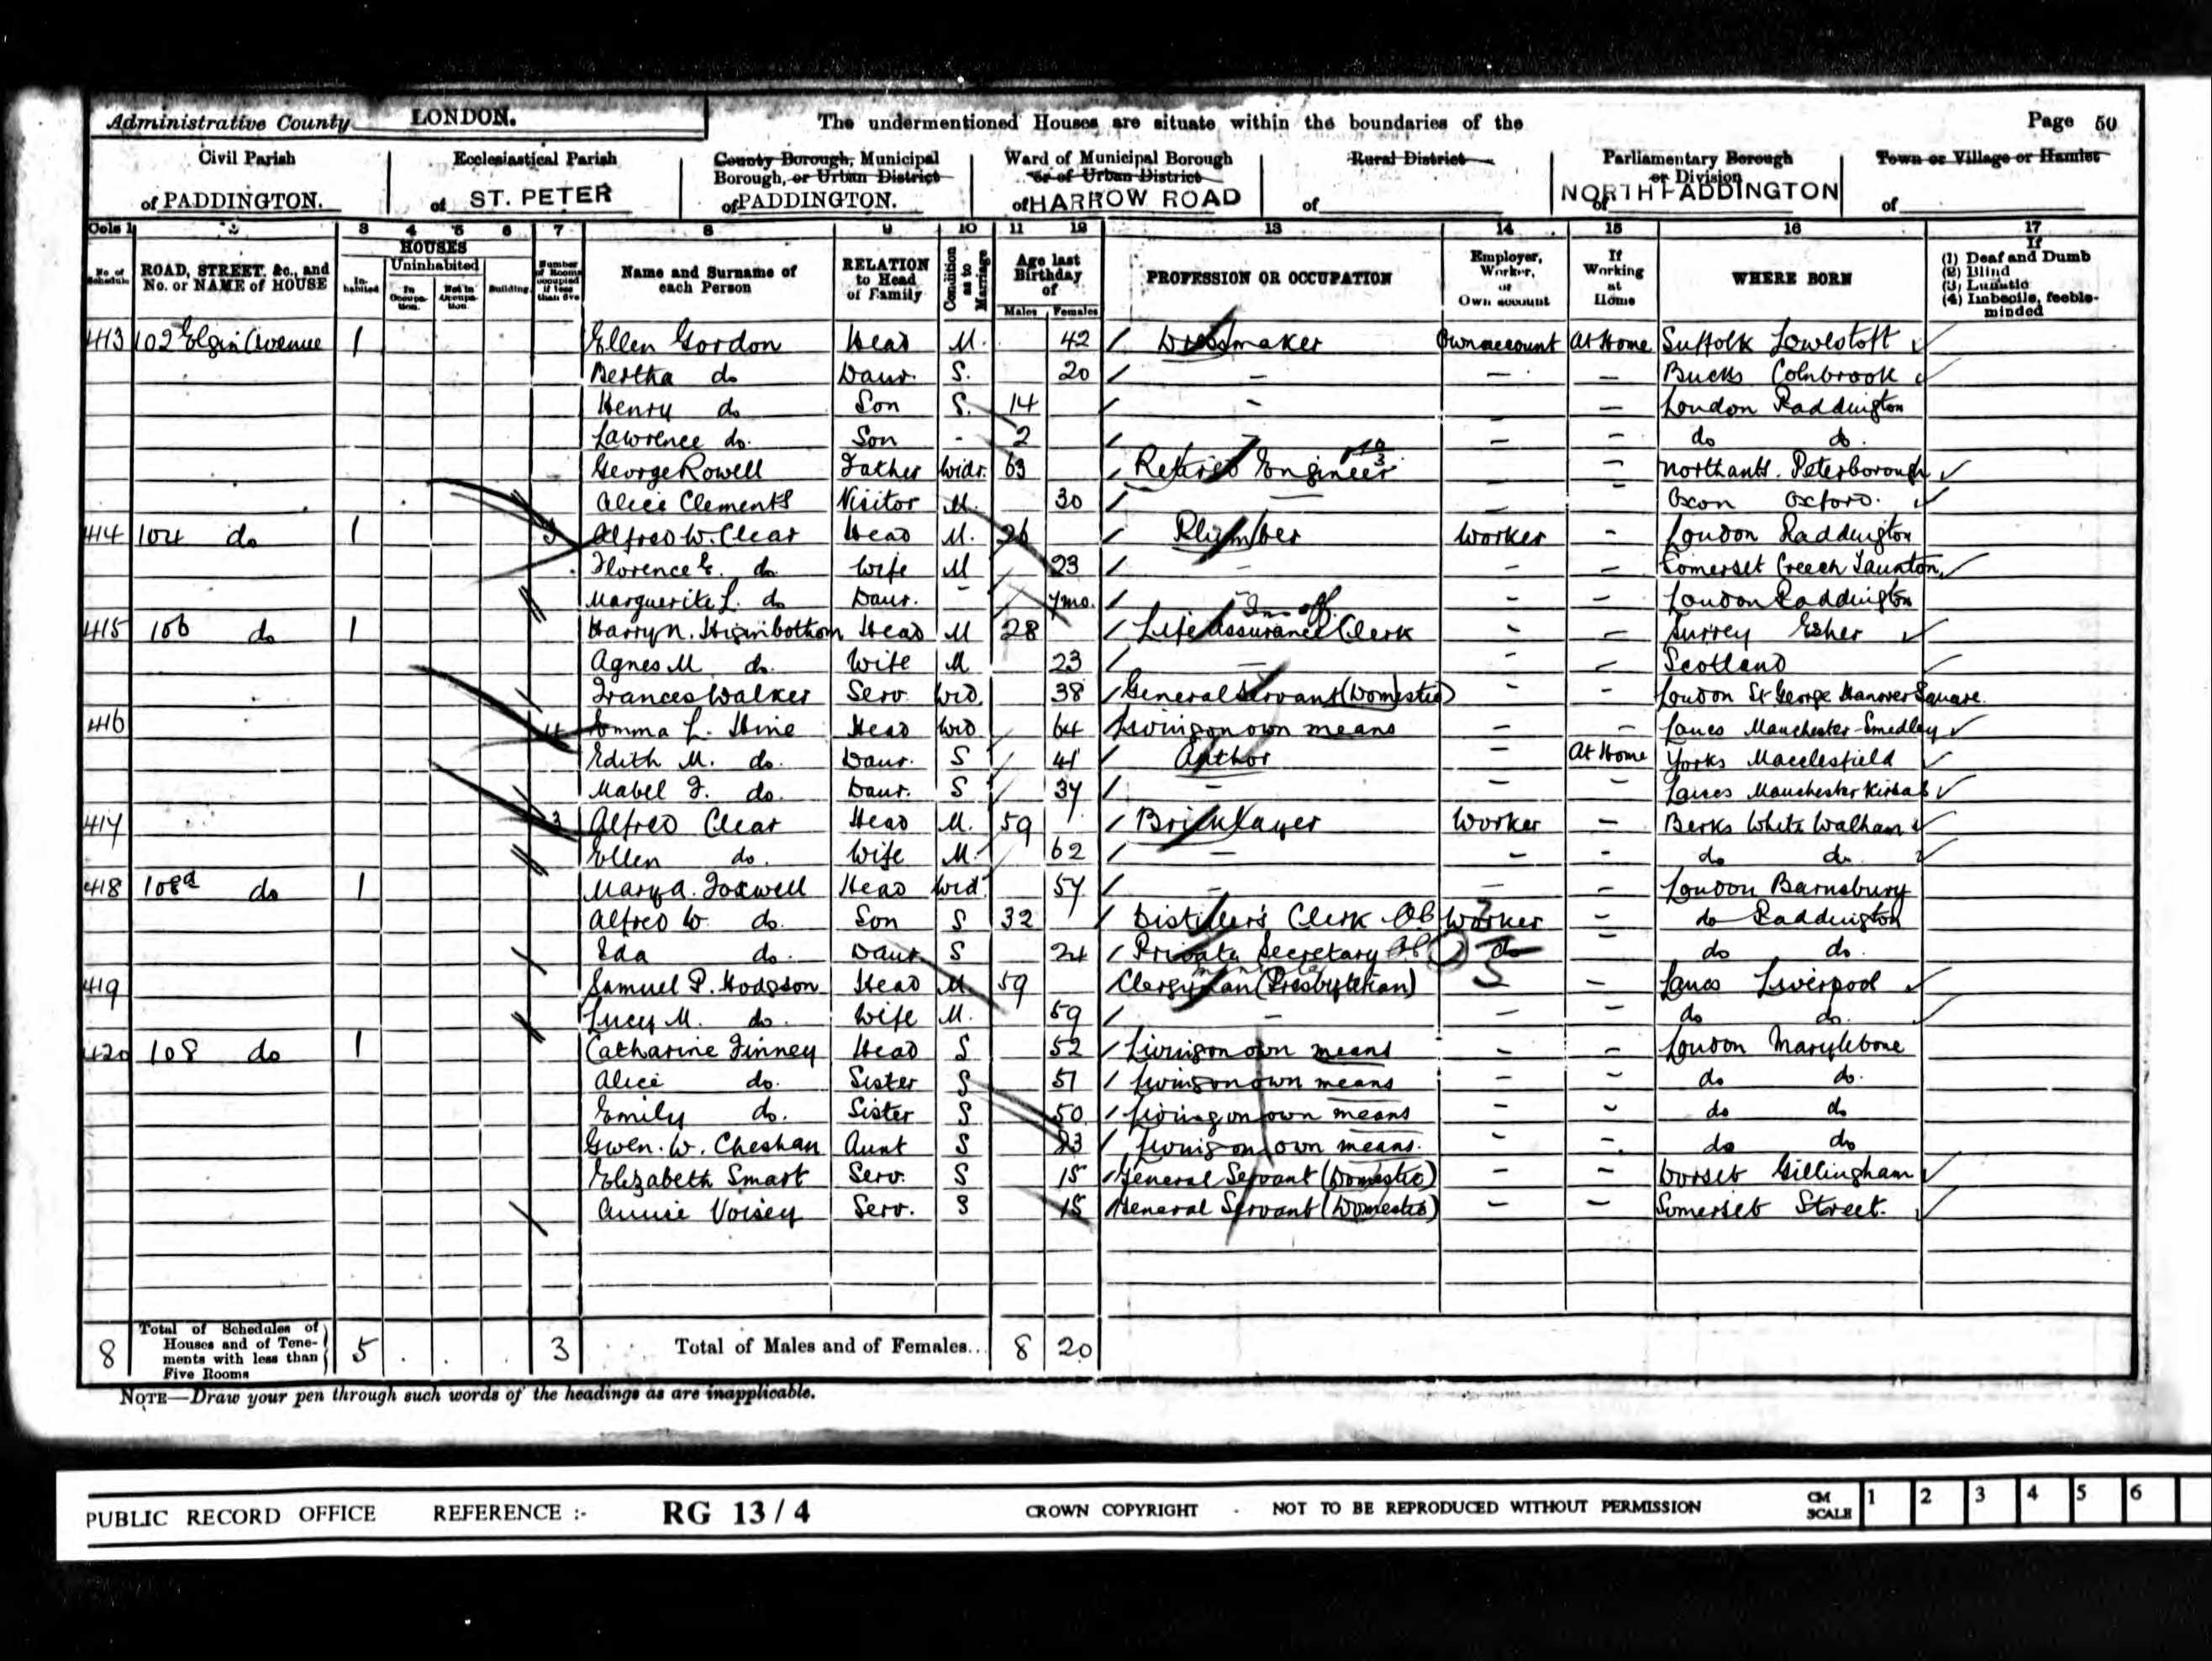 Administrative County LONDON. The undermentioned Houses are situate within the boundaries of the Page 50
Civil Parish Ecclesiastical Parish County Borough, Municipal Ward of Municipal Borough Rural District Parliamentary Borough Town or Village or Hamlet
Borough, or Urban District or of Urban District or Division
of PADDINGTON. of ST. PETER of PADDINGTON. of HARROW ROAD of NORTH PADDINGTON of
Cols 1 2 3 4 5 6 7 8 9 10 11 12 13 14 15 16 17
No. of Schedule ROAD, STREET, &c., and No. or NAME of HOUSE HOUSES In-habited Uninhabited In Occupa-tion. Not in Occupa-tion. Building. Number of Rooms occupied if less than five Name and Surname of each Person RELATION to Head of Family Condition as to Marriage Age last Birthday of Males Females PROFESSION OR OCCUPATION Employer, Worker, or Own account If Working at Home WHERE BORN If (1) Deaf and Dumb (2) Blind (3) Lunatic (4) Imbecile, feeble-minded
413 102 Elgin Avenue 1 Ellen Gordon Head M. 42 Dressmaker Own account At Home Suffolk Lowestoft
Bertha do Daur. S. 20 – – – Bucks Colnbrook
Henry do Son S. 14 – – London Paddington
Lawrence do. Son - 2 – – – do do.
George Rowell Father Widr. 63 Retired Engineer – – Northants. Peterborough
Alice Clements Visitor M. 30 – – – Oxon Oxford.
414 104 do 1 3 Alfred W. Clear Head M. 26 Plumber Worker – London Paddington
Florence E. do Wife M 23 – – – Somerset Creech Taunton
Marguerite L. do Daur. – 7mo. – – – London Paddington
415 106 do 1 Harry N. Higinbothom Head M 28 Life Assurance Clerk Ins off. – – Surrey Esher
Agnes M do. Wife M 23 – – – Scotland
Frances Walker Serv. Wid. 38 General Servant (Domestic) – – London St George Hanover Square
416 4 Emma L. Hine Head Wid 64 Living on own means – – Lancs Manchester-Smedley
Edith M. do. Daur. S 41 Author – At Home Yorks Macclesfield
Mabel F. do. Daur. S 37 – – – Lancs Manchester
417 3 Alfred Clear Head M. 59 Bricklayer Worker – Berks White Walham
Ellen do. Wife M. 62 – – – do do
418 108a do 1 Mary A. Foxwell Head Wid. 57 – – – London Barnsbury
Alfred W. do. Son S 32 Distiller's Clerk Worker – do Paddington
Ida do. Daur S 24 Private Secretary do – do do.
419 Samuel P. Hodgson Head M 59 Clergyman (Presbyterian) – Lancs Liverpool
Lucy M. do. Wife M. 59 – – – do do.
420 108 do 1 Catharine Finney Head S 52 Living on own means – – London Marylebone
Alice do. Sister S 51 Living on own means – – do do.
Emily do. Sister S 50 Living on own means – – do do
Gwen. W. Cheshan Aunt S 83 Living on own means. – – do do
Elizabeth Smart Serv. S 15 General Servant (Domestic) – – Dorset Gillingham
Annie Voisey Serv. S 15 General Servant (Domestic) – – Somerset Street.
8 Total of Schedules of Houses and of Tene-ments with less than Five Rooms 5 . . 3 Total of Males and of Females... 8 20
NOTE—Draw your pen through such words of the headings as are inapplicable.
PUBLIC RECORD OFFICE REFERENCE :- RG 13 / 4 CROWN COPYRIGHT - NOT TO BE REPRODUCED WITHOUT PERMISSION CM SCALE 1 2 3 4 5 6